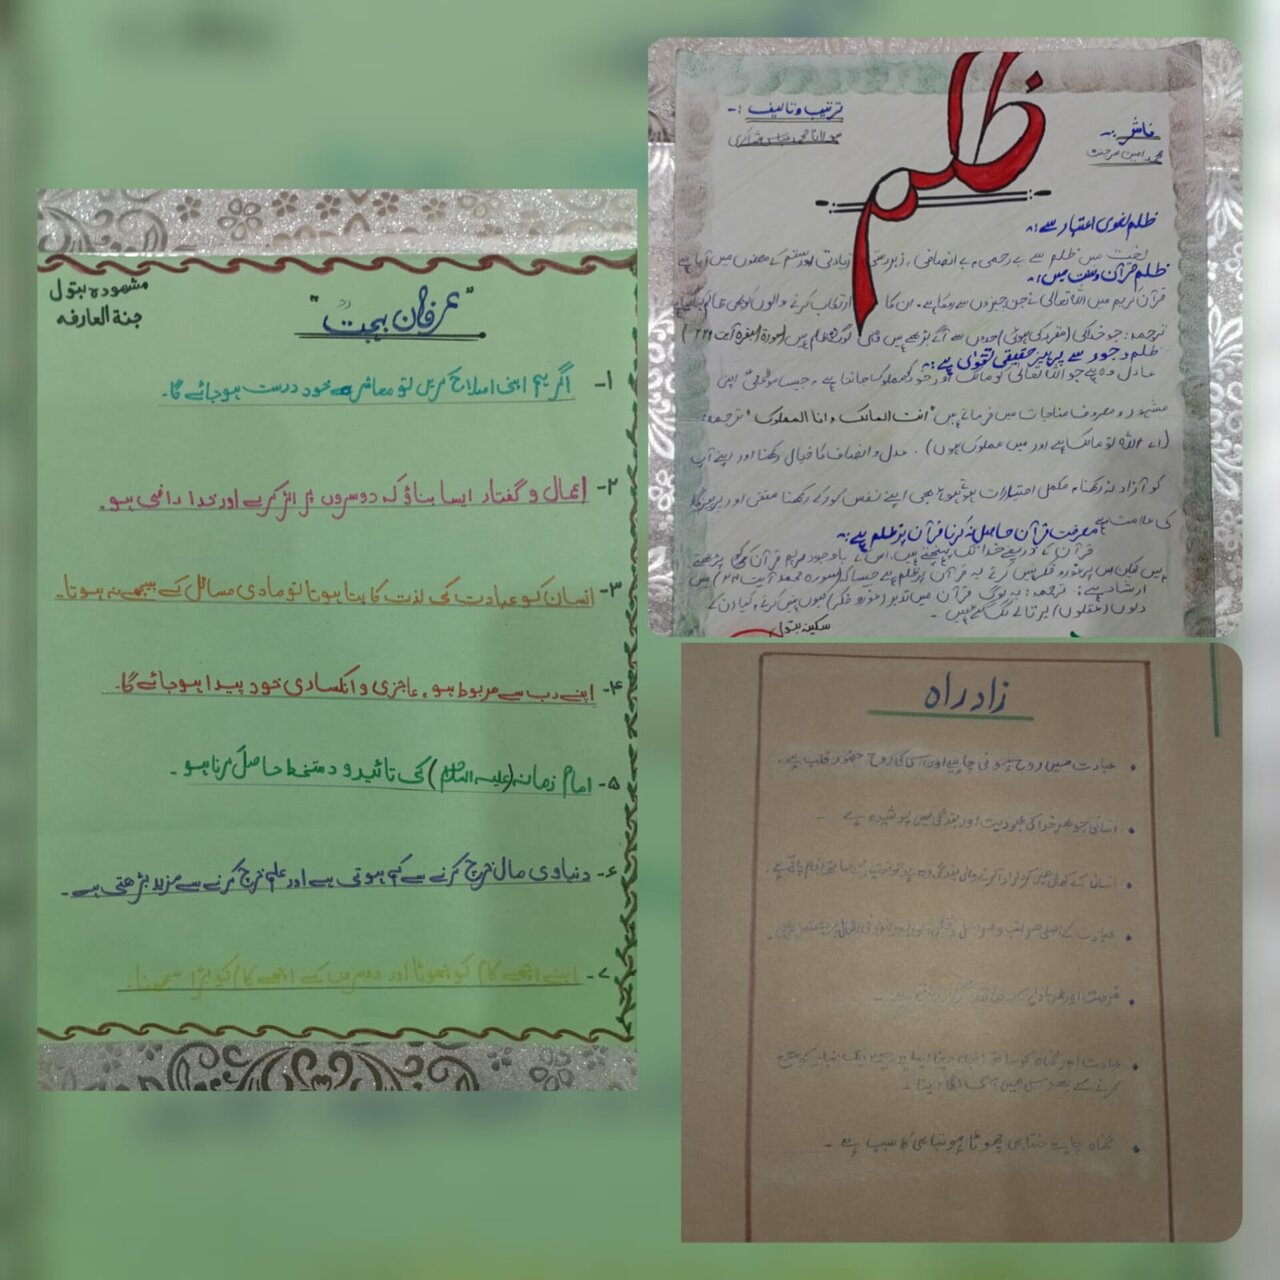 مشہودہ بتول
جنة العارفه
"عرفان بہجت"
۱- اگر ہم اپنی اصلاح کرلیں تو معاشرہ خود درست ہوجائے گا۔
۲- اعمال و گفتار ایسا بناؤ کہ دوسروں پر اثر کرے اور خدا راضی ہو۔
۳- انسان کو عبادت کی لذت کا پتا ہوتا تو مادی مسائل کے پیچھے نہ ہوتا۔
۴- اپنے رب سے مربوط ہو، عاجزی و انکساری خود پیدا ہوجائے گا۔
۵- امام زمانہ (علیہ السلام) کی تائید و دستخط حاصل کرنا ہو۔
۶- دنیاوی مال خرچ کرنے سے کم ہوتی ہے اور علم خرچ کرنے سے مزید بڑھتی ہے۔
۷- اپنے اچھے کام کو چھوٹا اور دوسروں کے اچھے کام کو بڑا سمجھنا۔
ظلم
ترتیب و تالیف :-
مولانا محمد
ناشر :-
محمد امین
ظلم لغوی اعتبار سے:
لغت میں ظلم سے بے رحمی، بے انصافی، زبردستی، زیادتی اور ستم کے معنوں میں آیا ہے
ظلم قرآن و سنت میں:
قرآن کریم میں اللہ تعالیٰ نے جن چیزوں سے روکا ہے۔ ان کا ارتکاب کرنے والوں کو بھی ظالم کہا ہے
ترجمہ: جو خدا کی (مقرر کی ہوئی) حدوں سے آگے بڑھے ہیں وہی لوگ ظالم ہیں (سورة البقرة آیت ۲۲۹)
ظلم و جور سے پرہیز حقیقی تقوٰی ہے:
عادل وہ ہے جو اللہ تعالیٰ کو مالک اور خود کو مملوک جانتا ہے، جیسا اپنی
مشہور و معروف مناجات میں فرماتے ہیں "انت المالک و انا المملوک" ترجمہ:
(اے اللہ تو مالک ہے اور میں مملوک ہوں)۔ عدل و انصاف کا خیال رکھنا اور اپنے آپ
کو آزاد نہ رکھنا، مکمل اختیارات ہوتے ہوئے بھی اپنے نفس کو روکے رکھنا متقی اور پرہیزگار
کی علامت ہے
معرفت قرآن حاصل نہ کرنا قرآن پر ظلم ہے:
قرآن کے ذریعے خدا تک پہنچتے ہیں۔ اس کے باوجود ہم قرآن کو پڑھتے
ہیں لیکن اس پر غور و فکر نہیں کرتے یہ قرآن پر ظلم ہے جیسا کہ (سورہ محمد آیت ۲۴) میں
ارشاد ہے: ترجمہ: یہ لوگ قرآن میں تدبر (غور و فکر) کیوں نہیں کرتے، کیا ان کے
دلوں (عقلوں) پر تالے لگ گئے ہیں۔
سکینہ بتول
زاد راہ
• عبادت میں روح ہونی چاہیے اور اس کی روح حضور قلب ہے۔
• انسانی جوہر خدا کی عبودیت اور بندگی میں پوشیدہ ہے۔
• انسان کے کمال میں کردار ادا کرنے والی بندگی وہ ہے جو
• عبادت کے اصلی
• فرصت اور
• عبادت اور گناہ کو ساتھ انجام دینا ایسا ہے جیسے ایک انبار کو جمع
کرنے کے بعد اس میں آگ لگا دینا۔
• گناہ چاہے جتنا بھی چھوٹا ہو تباہی کا سبب ہے۔